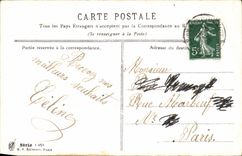 CARTE POSTALE
Tous les Pays Etrangers n'acceptent pas la Correspondance au R
(Se renseigner à la Poste)
Partie réservée à la correspondance.
Adresse du desti
Recevez mes
meilleurs souhaits
Céline
Monsieur
Rue Marbeuf
Paris
5
Série